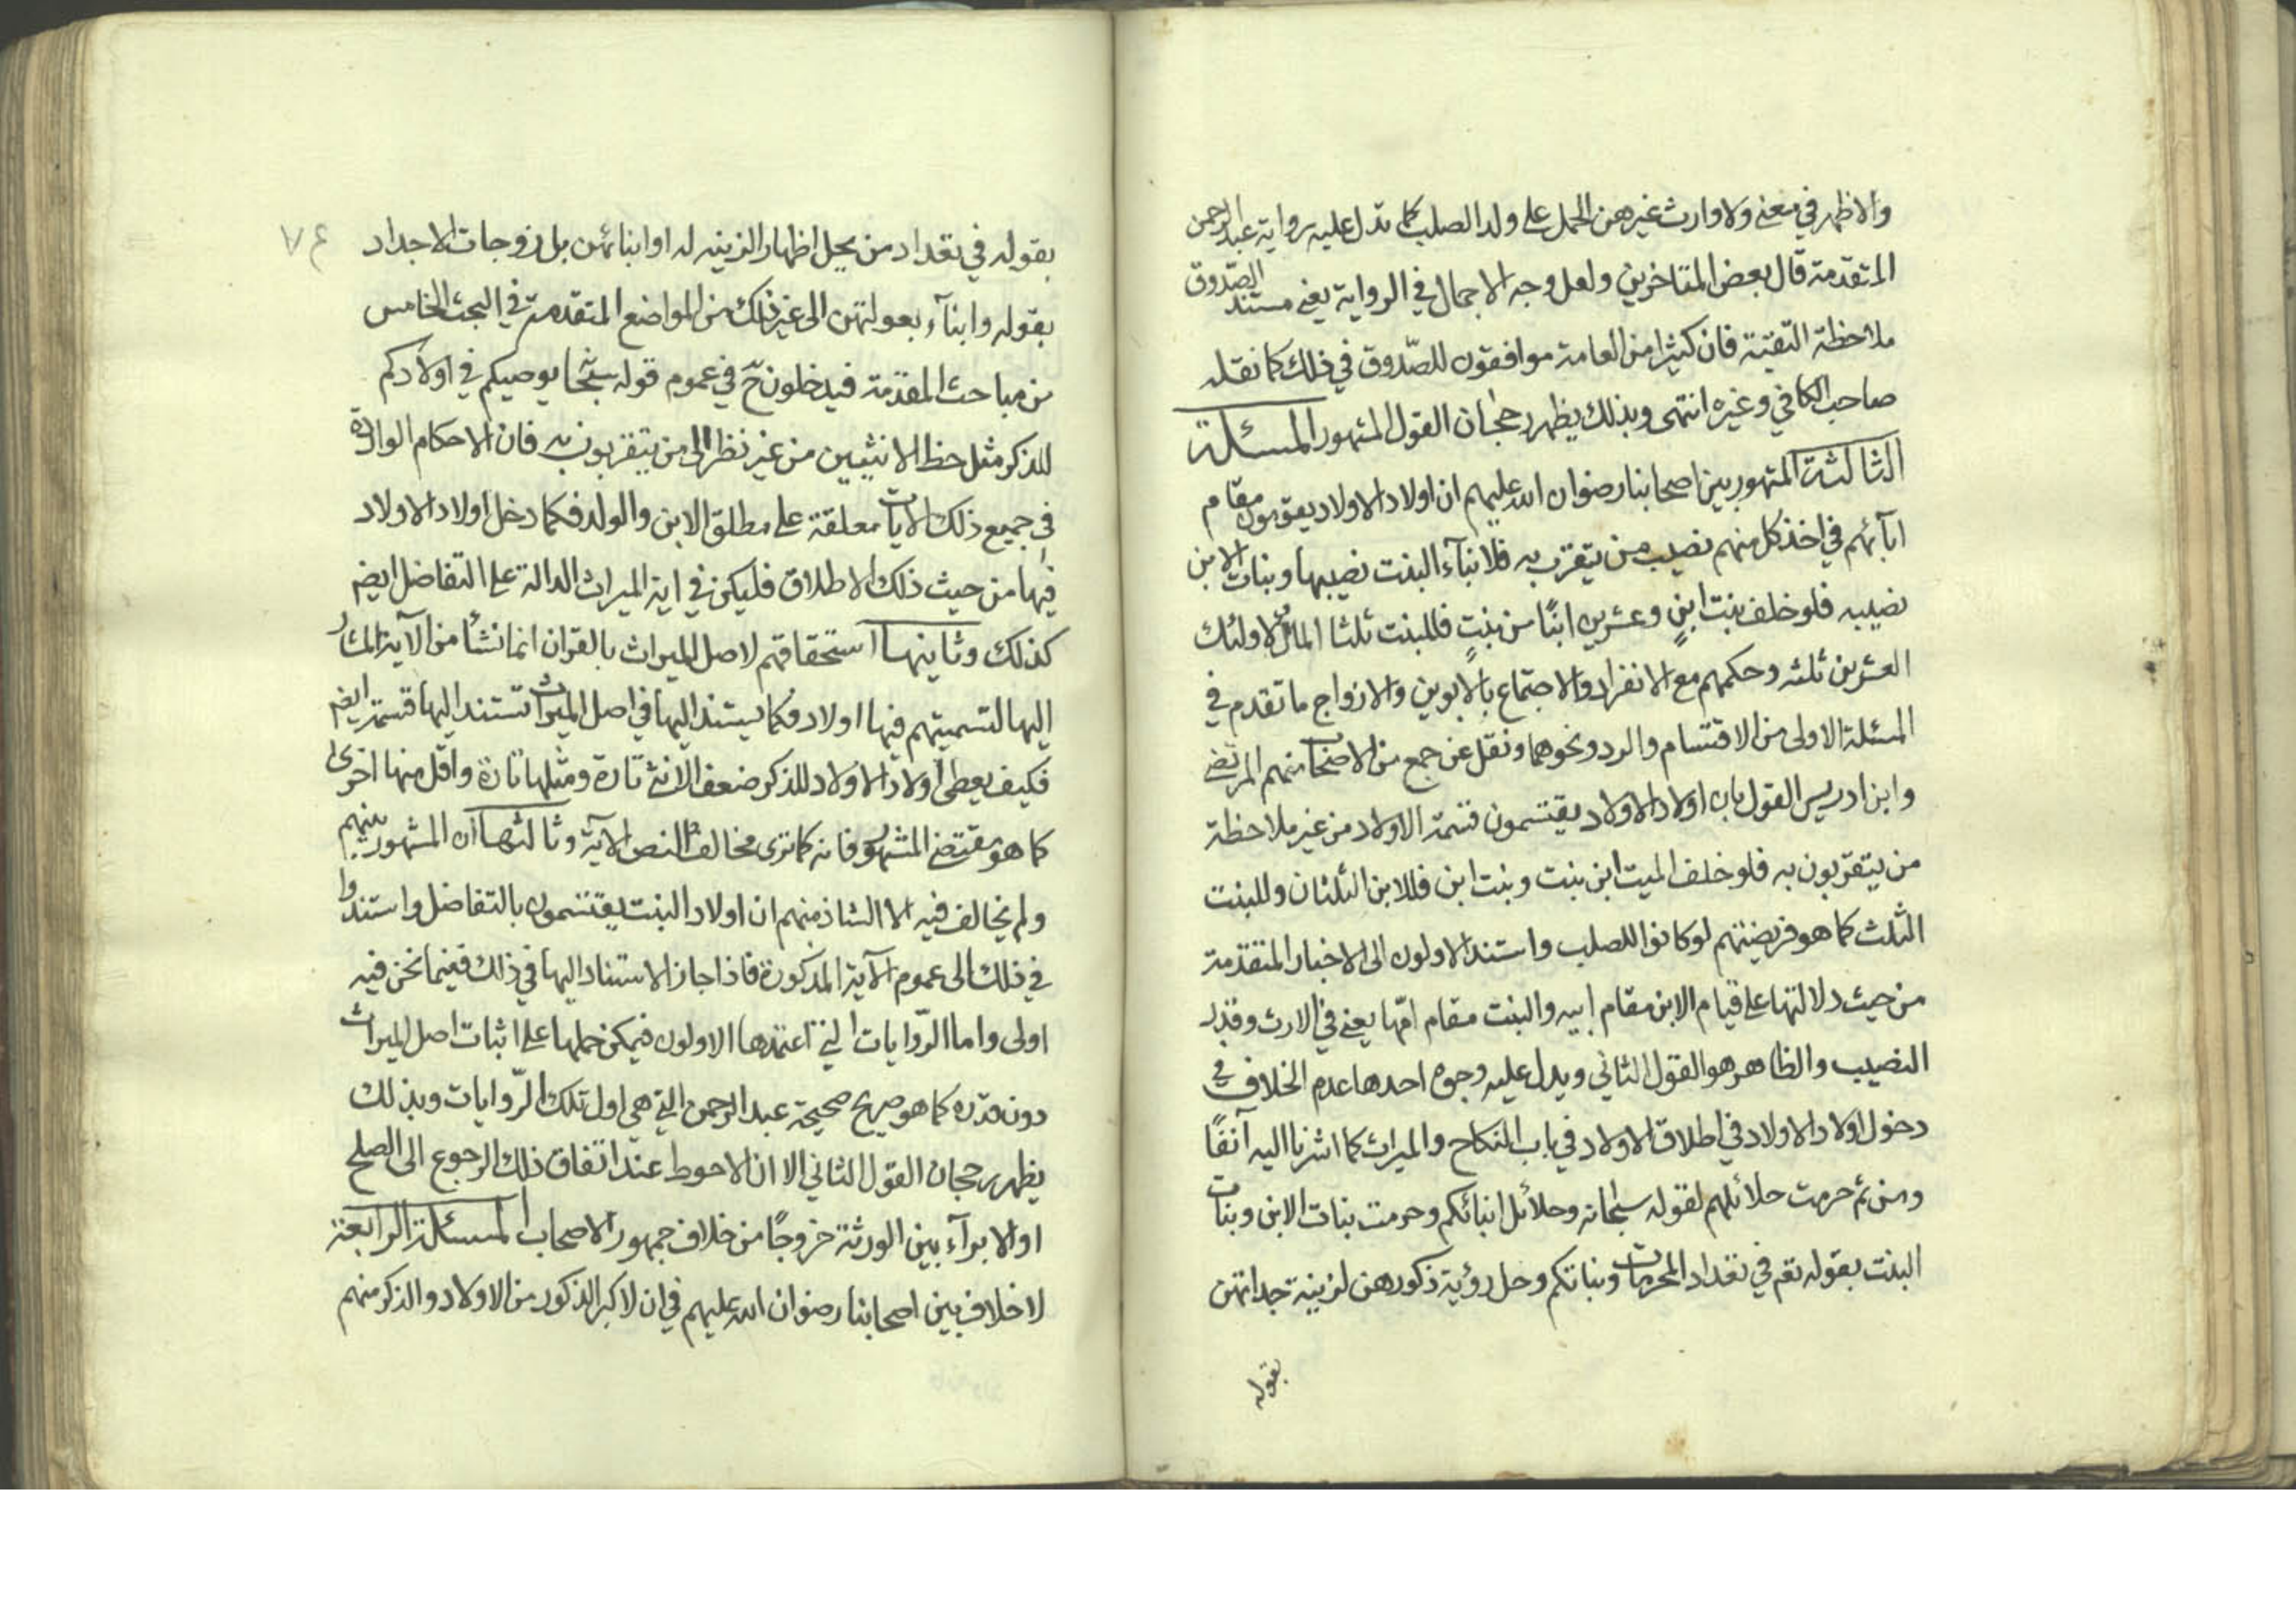 والاظهر في معنى ولا وارث غيرهن الحمل على ولد الصلب كما تدل عليه رواية عبد الرحمن
المتقدمة قال بعض المتاخرين ولعل وجه الاجمال في الرواية يعني مستند الصّدوق
ملاحظة التقيّة فان كثيرا من العامة موافقون للصّدوق في ذلك كما نقله
صاحب الكافي وغيره انتهى وبذلك يظهر رجحان القول المشهور المسئلة
الثالثة المشهور بين اصحابنا رضوان الله عليهم ان اولاد الاولاد يقومون مقام
ابآئهم في اخذ كل منهم نصيب من يتقرب به فلابنآء البنت نصيبها وبنات الابن
نصيبه فلو خلف بنت ابنٍ وعشرين ابنًا من بنتٍ فللبنت ثلثا المال ولاولئك
العشرين ثلثه وحكمهم مع الانفراد والاجتماع بالابوين والازواج ما تقدم في
المسئلة الاولى من الاقتسام والرد ونحوهما ونقل عن جمع من الاصحاب منهم المرتضى
وابن ادريس القول بان اولاد الاولاد يقتسمون قسمة الاولاد من غير ملاحظة
من يتقرّبون به فلو خلف الميت ابن بنت وبنت ابن فللابن الثلثان وللبنت
الثلث كما هو فريضتهم لو كانوا للصلب واستند الاولون الى الاخبار المتقدمة
من حيث دلالتها على قيام الابن مقام ابيه والبنت مقام امّها يعني في الارث وقدر
النصيب والظاهر هو القول الثاني ويدل عليه وجوه احدها عدم الخلاف في
دخول اولاد الاولاد في اطلاق الاولاد في باب النكاح والميراث كما اشرنا اليه آنفًا
ومن ثم حرمت حلائلهم لقوله سبحانه وحلائل ابنائكم وحرمت بنات الابن وبنات
البنت بقوله تعم في تعداد المحرمات وبناتكم وحل رؤية ذكورهن لزينة جداتهن
بقوله
٧٤
بقوله في تعداد من يحل اظهار الزينه له او ابنائهن بل زوجات الاجداد
بقوله وابنآء بعولتهن الى غير ذلك من المواضع المتقدمة في البحث الخامس
من مباحث المقدمة فيدخلون حّ في عموم قوله سبحا يوصيكم في اولادكم
للذكر مثل حظ الانثيين من غير نظر الى من يتقربون به فان الاحكام الواردة
في جميع ذلك الآيات معلقة على مطلق الابن والولد فكما دخل اولاد الاولاد
فيها من حيث ذلك الاطلاق فليكن في اية الميراث الدالة على التفاضل ايضم
كذلك وثانيها استحقاقهم لاصل الميراث بالقران انما نشأ من الآية المشار
اليها لتسميتهم فيها اولاد فكما يستند اليها في اصل الميراث تستند اليها قسمته ايضم
فكيف يعطى اولاد الاولاد للذكر ضعف الانثى تارة ومثلها تارة واقل منها اخرى
كما هو مقتضى المشهور فانه كما ترى مخالف لنص الآية وثالثها ان المشهور بينهم
ولم يخالف فيه الا الشاذ منهم ان اولاد البنت يقتسمون بالتفاضل واستندوا
في ذلك الى عموم الآية المذكورة فاذا جاز الاستناد اليها في ذلك ففيما نحن فيه
اولى واما الرّوايات التي اعتمدها الاولون فيمكن حملها على اثبات اصل الميراث
دون قدره كما هو صريح صحيحة عبد الرحمن التي هي اول تلك الرّوايات وبذلك
يظهر رجحان القول الثاني الا ان الاحوط عند اتفاق ذلك الرجوع الى الصلح
او الابرآء بين الورثة خروجًا من خلاف جمهور الاصحاب المسئلة الرابعة
لا خلاف بين اصحابنا رضوان الله عليهم في ان لاكبر الذكور من الاولاد والذكر منهم